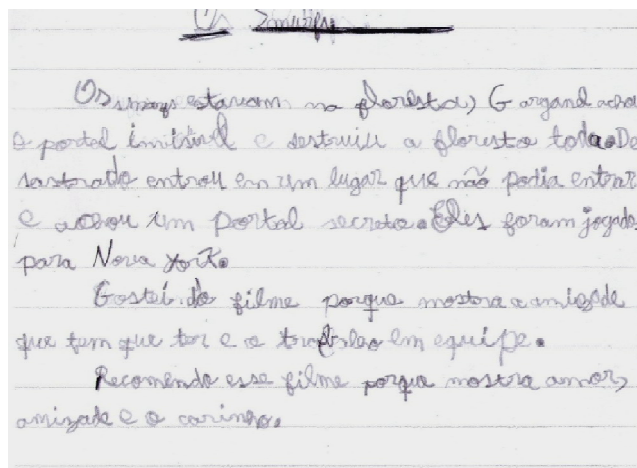 Os Smurfs
Os smurfs estavam na floresta, Gargamel acha
o portal invisivel e destruiu a floresta toda. De
sastorado entrou em um lugar que não podia entrar
e achou um portal secreto. Eles foram jogados
para Nova york.
Gostei do filme porque mostra a amizade
que tem que ter e o trabalho em equipe.
Recomendo esse filme porque mostra amor,
amizade e o carinho.